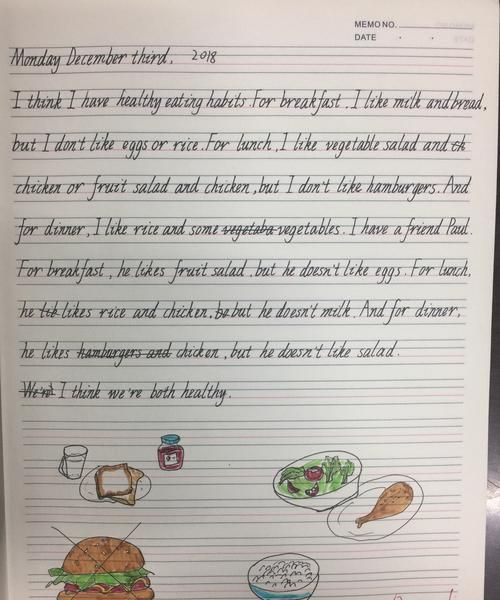 MEMO NO.
DATE
Monday December third, 2018
I think I have healthy eating habits. For breakfast, I like milk and bread,
but I don't like eggs or rice. For lunch, I like vegetable salad and th
chicken or fruit salad and chicken, but I don't like hamburgers. And
for dinner, I like rice and some vegetaba vegetables. I have a friend Paul.
For breakfast, he likes fruit salad, but he doesn't like eggs. For lunch,
he lik likes rice and chicken, he but he doesn't milk. And for dinner,
he likes hamburgers and chicken, but he doesn't like salad.
We're I think we're both healthy.